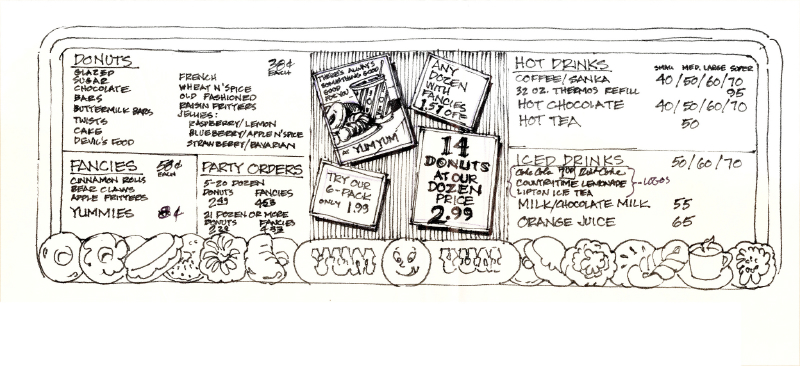 DONUTS 38¢ EACH
GLAZED
SUGAR
CHOCOLATE
BARS
BUTTERMILK BARS
TWISTS
CAKE
DEVIL'S FOOD
FRENCH
WHEAT N' SPICE
OLD FASHIONED
RAISIN FRITTERS
JELLIES:
RASPBERRY/LEMON
BLUEBERRY/APPLE N' SPICE
STRAWBERRY/BAVARIAN
FANCIES ¢ EACH
CINNAMON ROLLS
BEAR CLAWS
APPLE FRITTERS
YUMMIES ¢
PARTY ORDERS
5-20 DOZEN
DONUTS FANCIES
21 DOZEN OR MORE
DONUTS FANCIES
THERE'S ALWAYS
SOMETHING GOOD
GOOD
FOR YOU
AT YUM YUM
ANY
DOZEN
WITH
FANCIES
15¢ OFF
14
DONUTS
AT OUR
DOZEN
PRICE
2.99
TRY OUR
6-PACK
ONLY 1.99
HOT DRINKS SMALL MED. LARGE SUPER
COFFEE/SANKA 40/50/60/70
32 OZ. THERMOS REFILL 95
HOT CHOCOLATE 40/50/60/70
HOT TEA 50
ICED DRINKS 50/60/70
Coca Cola Diet Coke
COUNTRYTIME LEMONADE LOGOS
LIPTON ICE TEA
MILK/CHOCOLATE MILK 55
ORANGE JUICE 65
YUM YUM